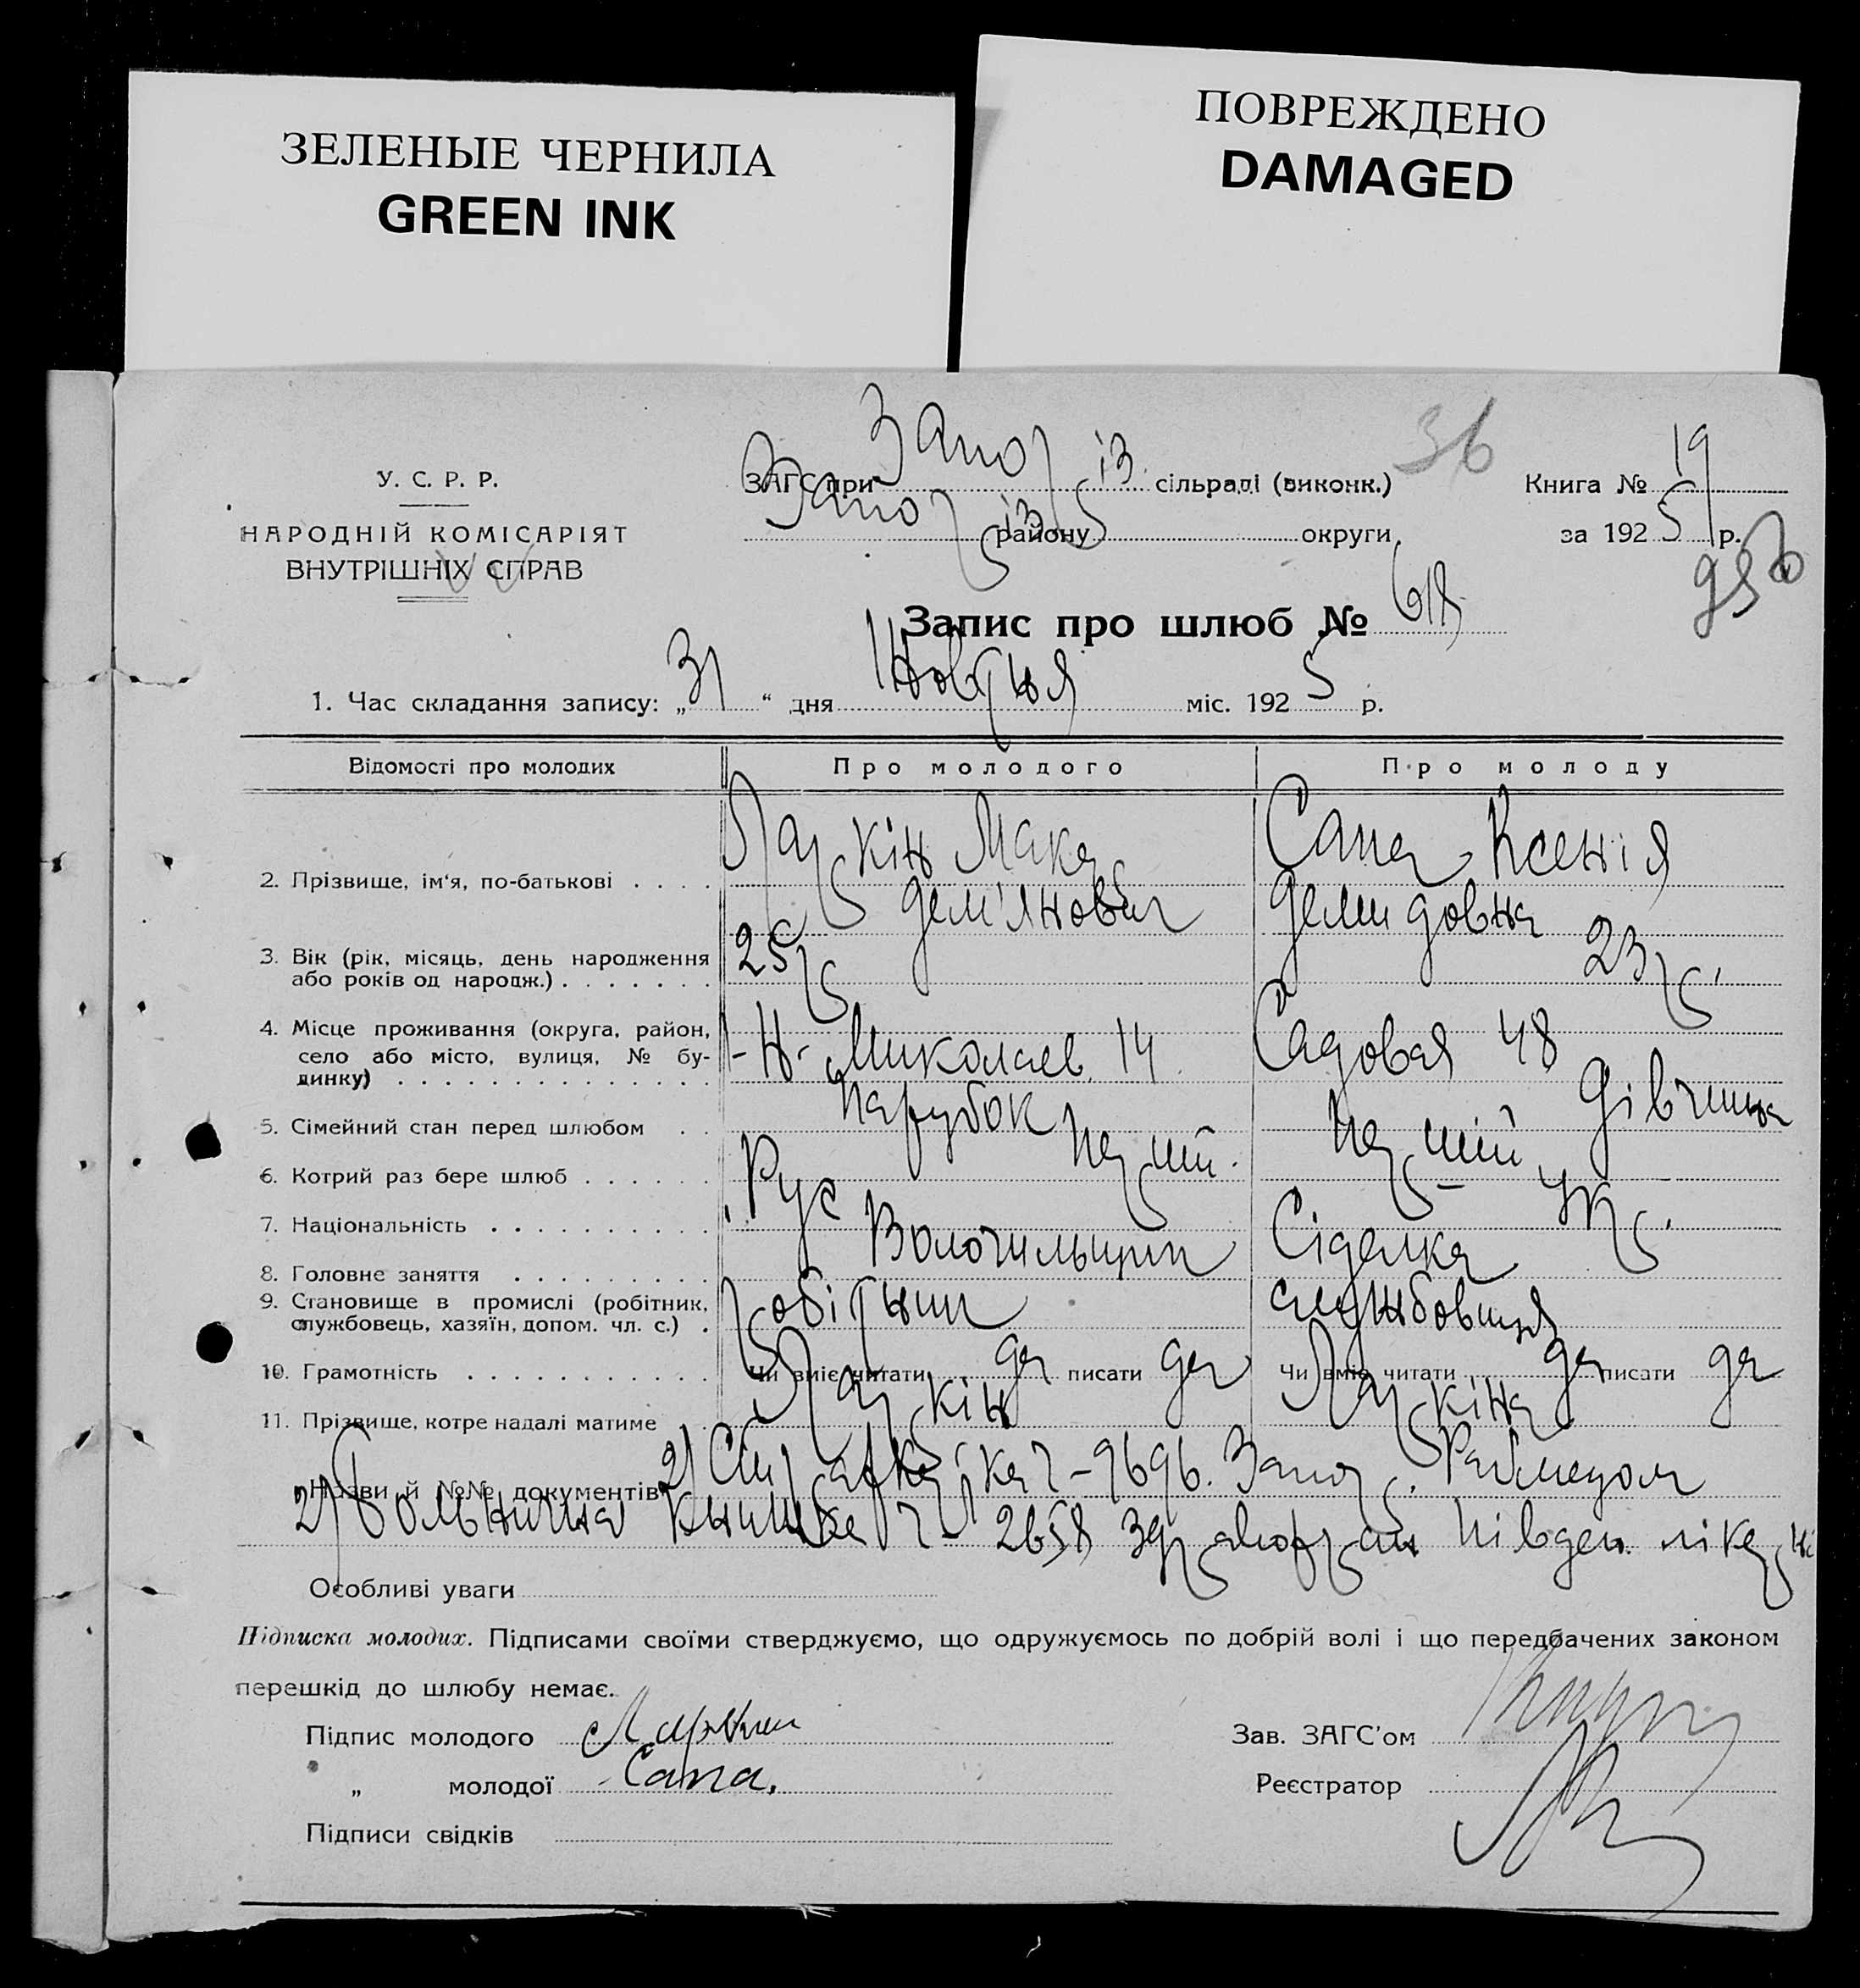 ЗЕЛЕНЫЕ ЧЕРНИЛА
GREEN INK
ПОВРЕЖДЕНО
DAMAGED
36
У. С. Р. Р.
НАРОДНІЙ КОМІСАРІЯТ
ВНУТРІШНІХ СПРАВ
ЗАГС при Запор із. сільраді (виконк.) Книга № 19
Запор із району округи за 1925 р.
Запис про шлюб № 618
1. Час складання запису: „31“ дня Жовтня міс. 1925 р.
Відомості про молодих Про молодого Про молоду
2. Прізвище, ім'я, по-батькові . . . . Ларкін Макар Сапа Ксенія
Дем'янович Демидовна
3. Вік (рік, місяць, день народження 25 р 23 р.
або років од народж.) . . . . . . .
4. Місце проживання (округа, район, Н-Миколаев. 14 Садовая 48
село або місто, вулиця, № бу-
динку) . . . . . . . . . . . . . .
5. Сімейний стан перед шлюбом . . Парубок Дівчина
6. Котрий раз бере шлюб . . . . . . Перший. Перший
7. Національність . . . . . . . . . . Рус Укр.
8. Головне заняття . . . . . . . . . Волочильщик Сіделка
9. Становище в промислі (робітник, робітник службовиця
службовець, хазяїн, допом. чл. с.) .
10. Грамотність . . . . . . . . . . . Чи вміє читати да писати да Чи вміє читати да писати да
11. Прізвище, котре надалі матиме Ларкін Ларкіна
Назви й №№ документів ч-9696. Запор. Раймедом
2) Больнична книжка ч- 2658 Півден. лікарні
Особливі уваги
Підписка молодих. Підписами своїми стверджуємо, що одружуємось по добрій волі і що передбачених законом
перешкід до шлюбу немає.
Підпис молодого Ларкин Зав. ЗАГС'ом
„ молодої Сапа. Реєстратор
Підписи свідків